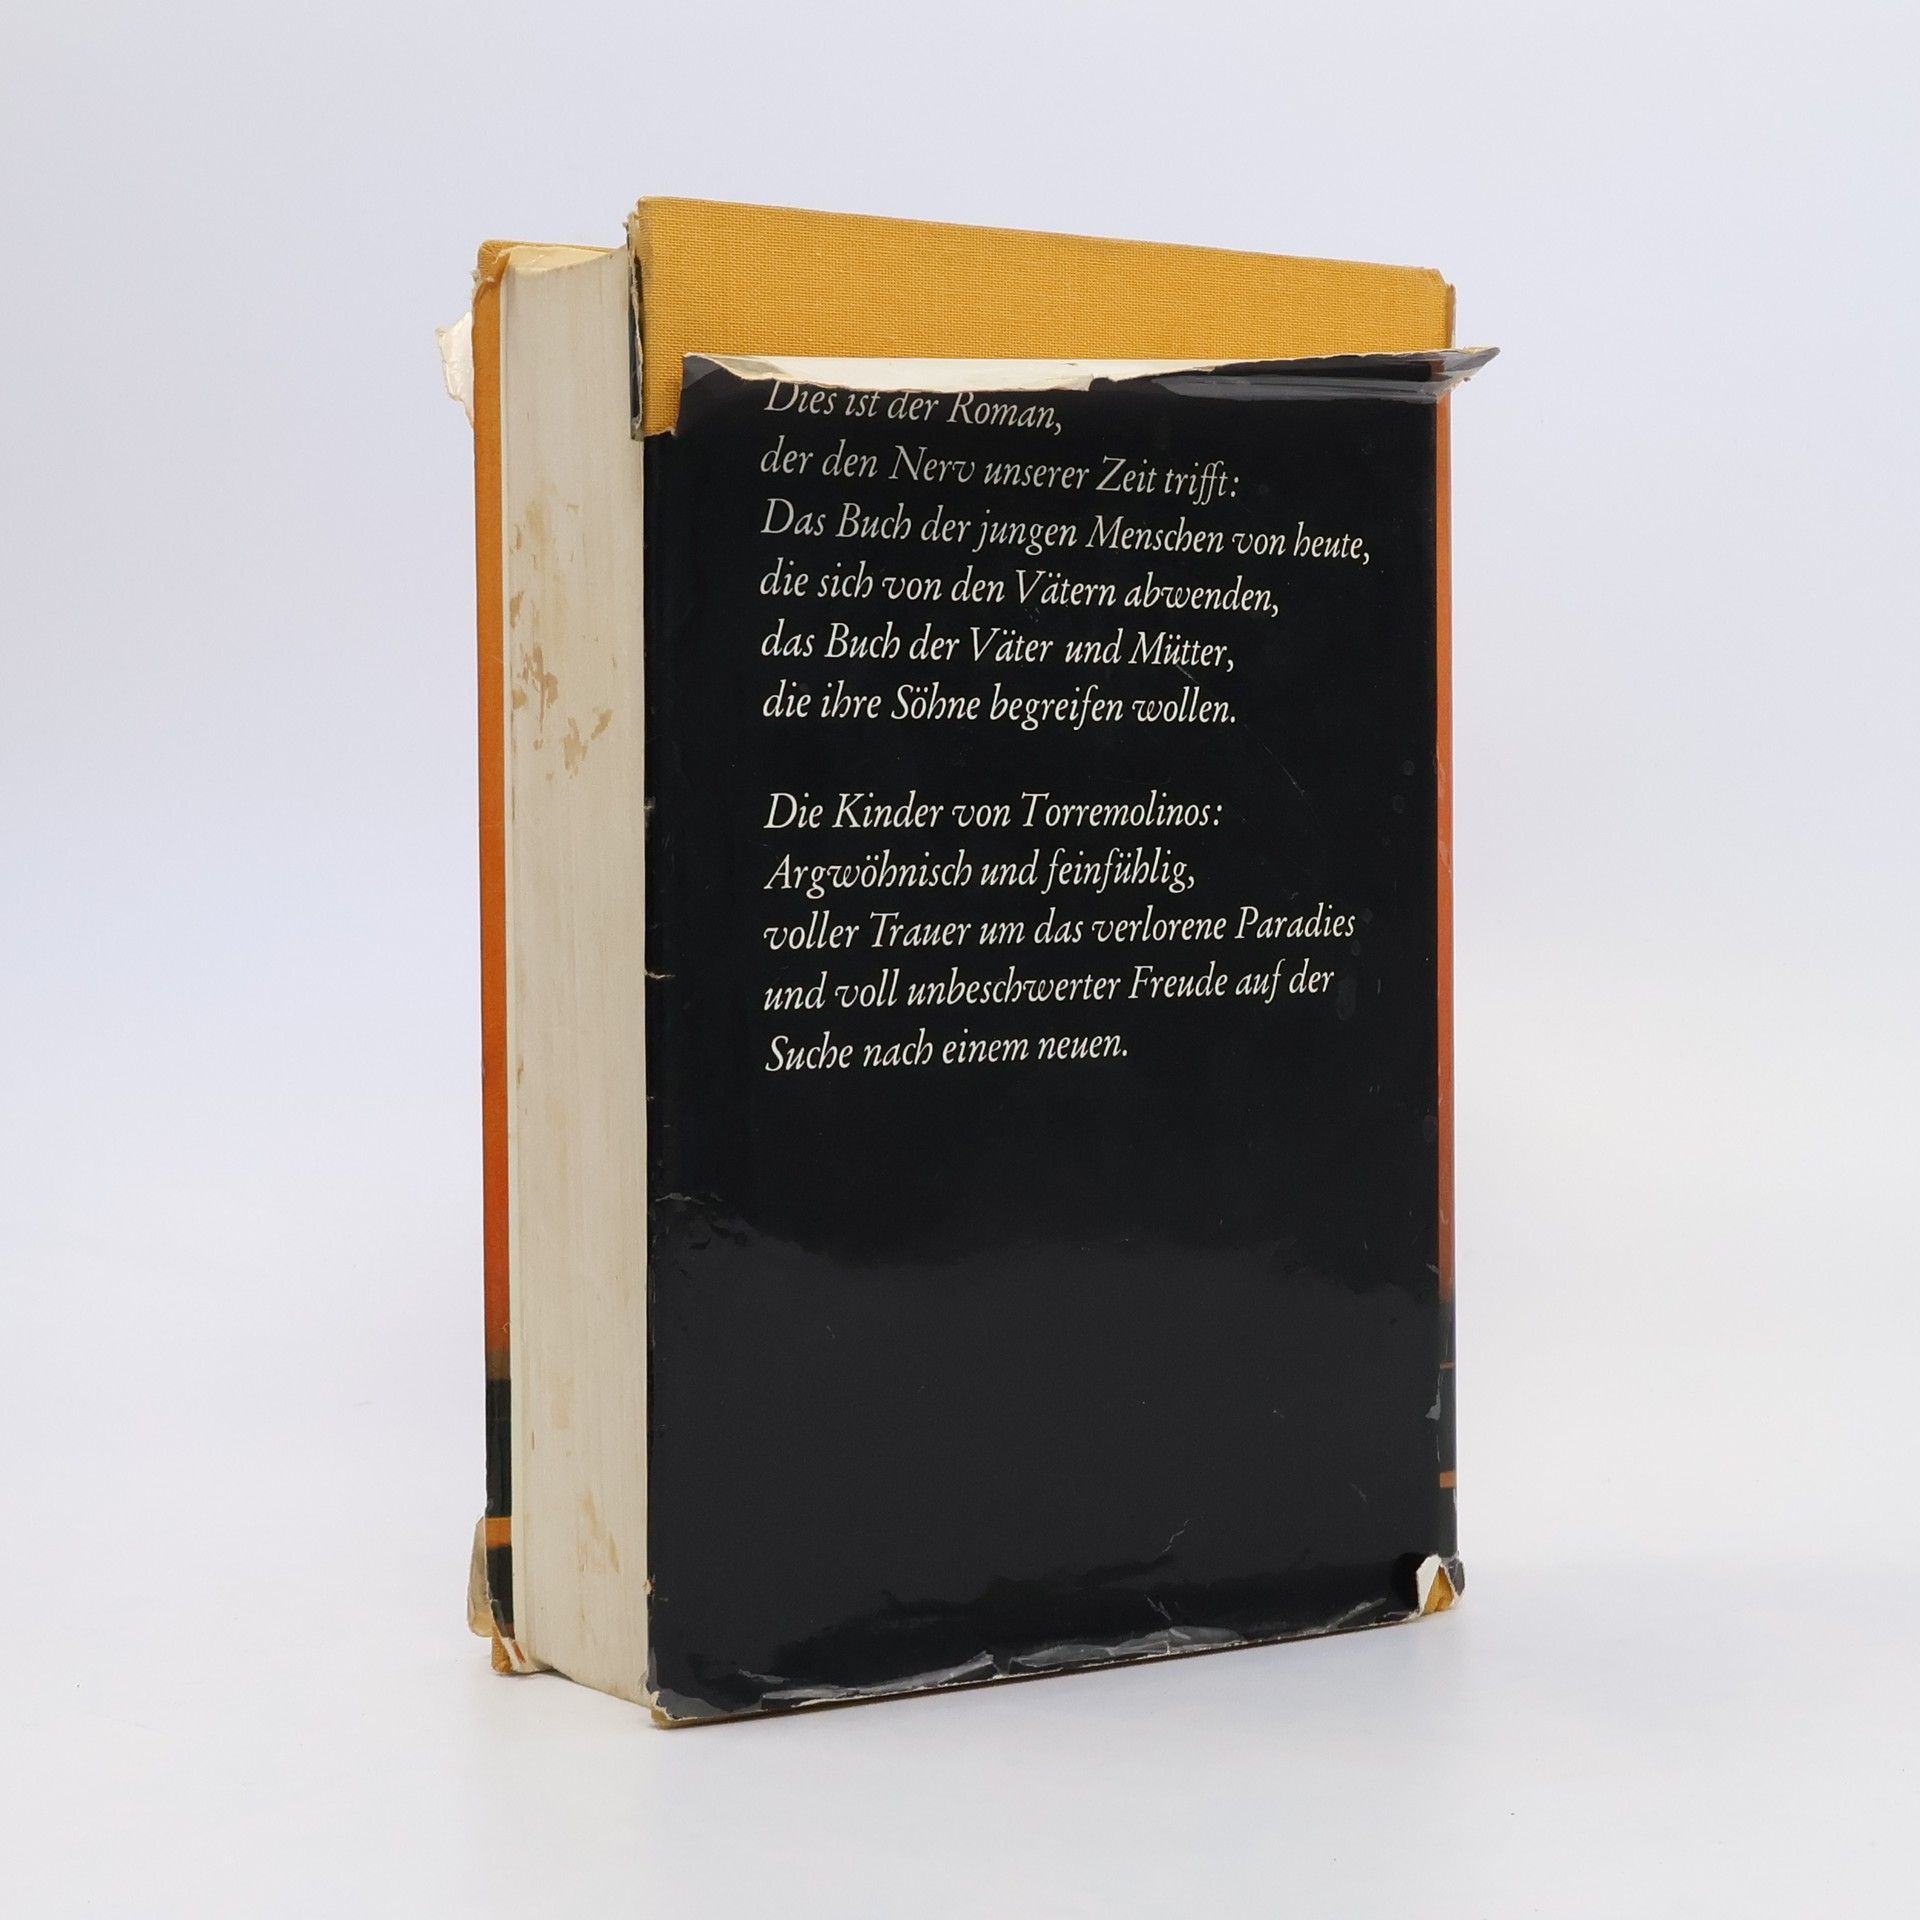 Dies ist der Roman,
der den Nerv unserer Zeit trifft:
Das Buch der jungen Menschen von heute,
die sich von den Vätern abwenden,
das Buch der Väter und Mütter,
die ihre Söhne begreifen wollen.
Die Kinder von Torremolinos:
Argwöhnisch und feinfühlig,
voller Trauer um das verlorene Paradies
und voll unbeschwerter Freude auf der
Suche nach einem neuen.